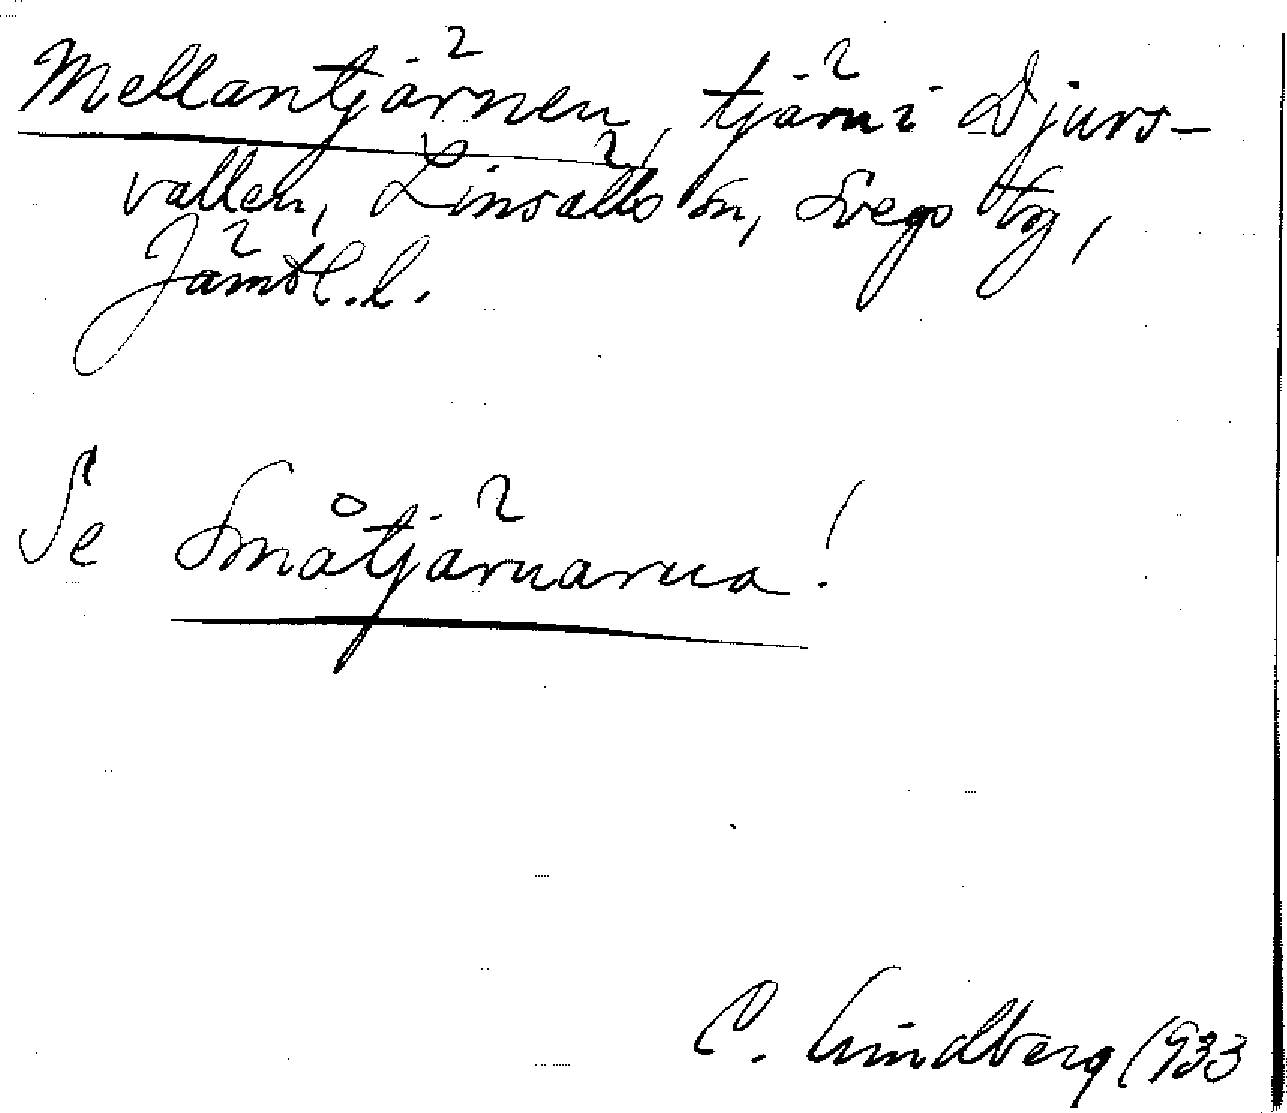 Mellantjärnen, tjärn i Djurs-
vallen, Linsälls sn, Svegs tg,
Jämtl. l.
Se Småtjärnarna!
C. Lindberg 1933